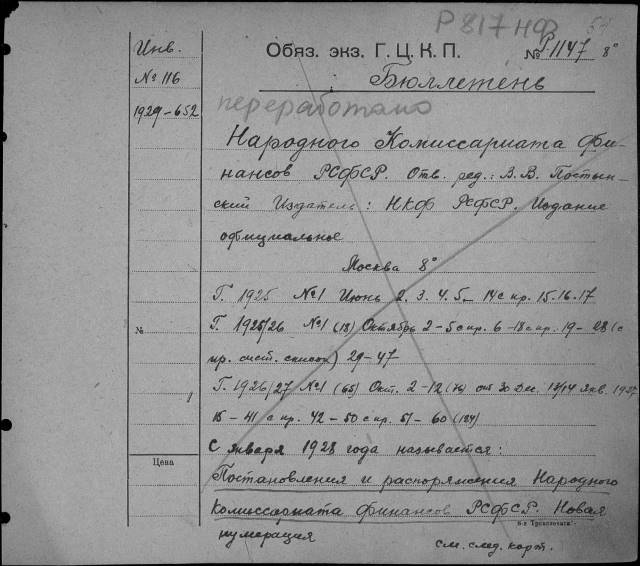 Р 817 НФ
Инв.
№ 116
1929-652
Обяз. экз. Г.Ц.К.П.
№ Р.1147 8°
Бюллетень
переработано
Народного Комиссариата Фи-
нансов РСФСР. Отв. ред.: В.В. Постын-
ский Издатель: НКФ РСФСР. Издание
официальное
Москва 8°
Г. 1925 №1 Июнь 2. 3. 4. 5 – 14 с пр. 15. 16. 17
№
Г. 1925/26 №1 (18) Октябрь 2-5 с пр. 6-18 с пр. 19-28 (с
пр. сист. список) 29-47
Г. 1926/27 №1 (65) Окт. 2-12 (76) от 30 Дек. 13/14 Янв. 1927
15-41 с пр. 42-50 с пр. 51-60 (124)
С января 1928 года называется:
Цена
Постановления и распоряжения Народного
Комиссариата Финансов РСФСР. Новая
нумерация
см. след. карт.